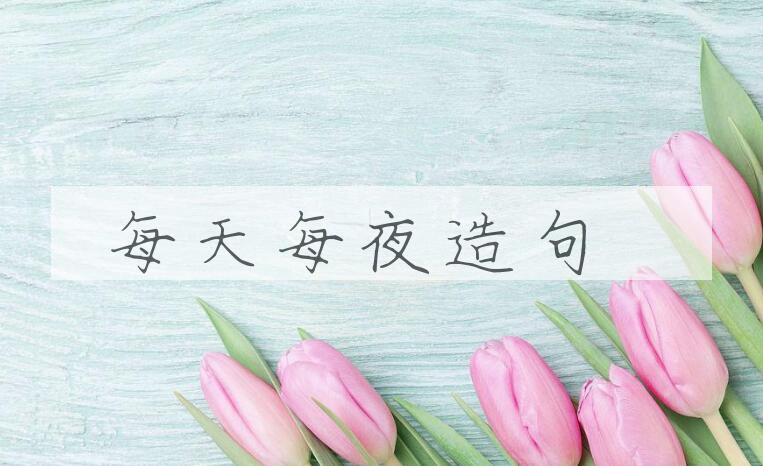 每天每夜造句